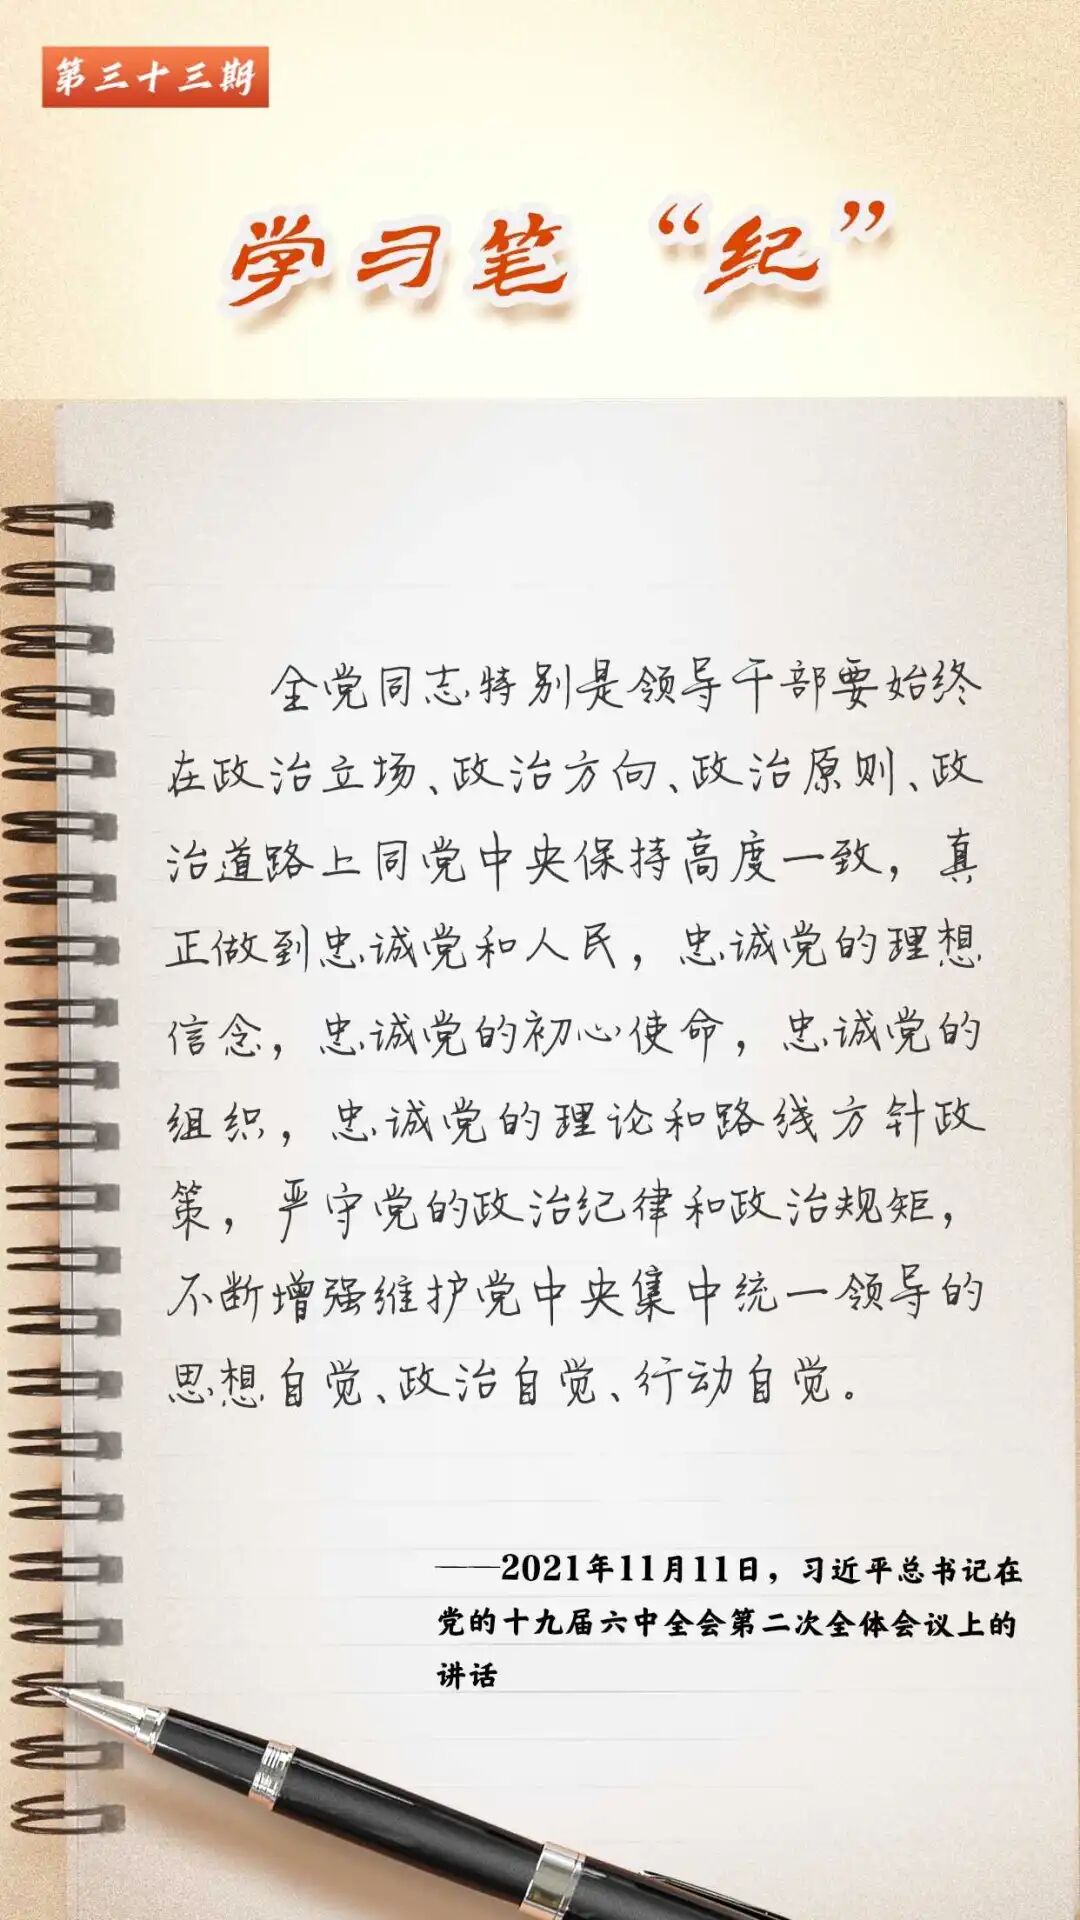 第三十三期
学习笔“纪”
全党同志特别是领导干部要始终
在政治立场、政治方向、政治原则、政
治道路上同党中央保持高度一致，真
正做到忠诚党和人民，忠诚党的理想
信念，忠诚党的初心使命，忠诚党的
组织，忠诚党的理论和路线方针政
策，严守党的政治纪律和政治规矩，
不断增强维护党中央集中统一领导的
思想自觉、政治自觉、行动自觉。
——2021年11月11日，习近平总书记在
党的十九届六中全会第二次全体会议上的
讲话